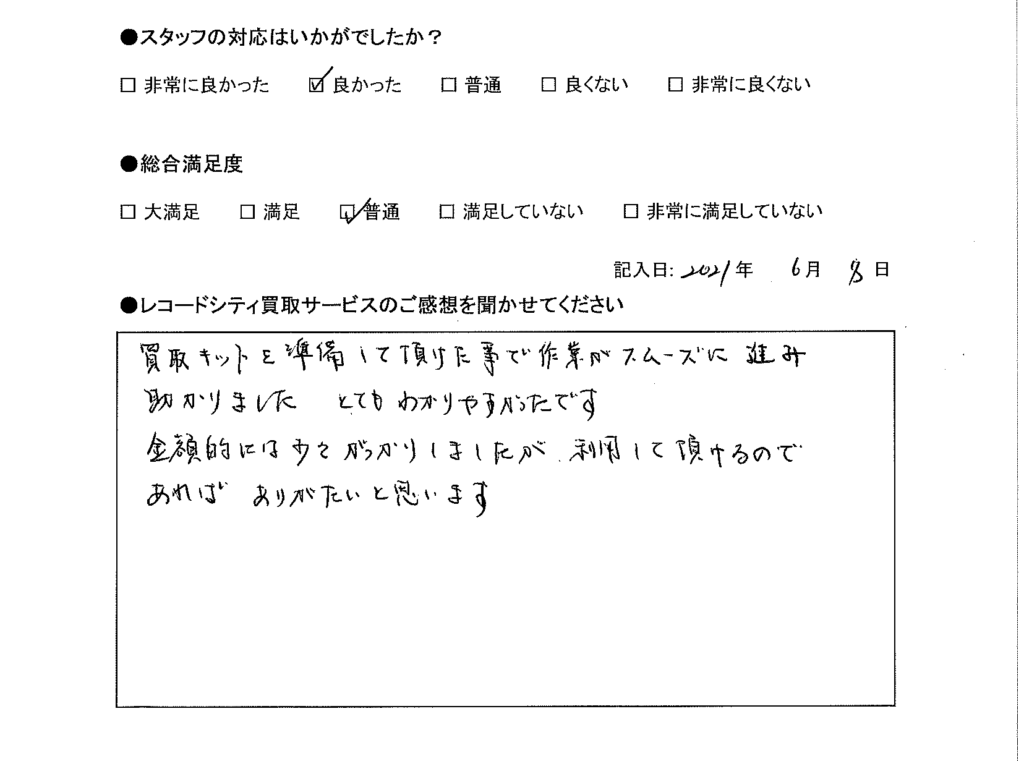 ●スタッフの対応はいかがでしたか？
□ 非常に良かった ☑ 良かった □ 普通 □ 良くない □ 非常に良くない
●総合満足度
□ 大満足 □ 満足 ☑ 普通 □ 満足していない □ 非常に満足していない
記入日: 2021年 6月 8日
●レコードシティ買取サービスのご感想を聞かせてください
買取キットを準備して頂けた事で作業がスムーズに進み
助かりました とてもわかりやすかったです
金額的には少々がっかりしましたが 利用して頂けるので
あれば ありがたいと思います